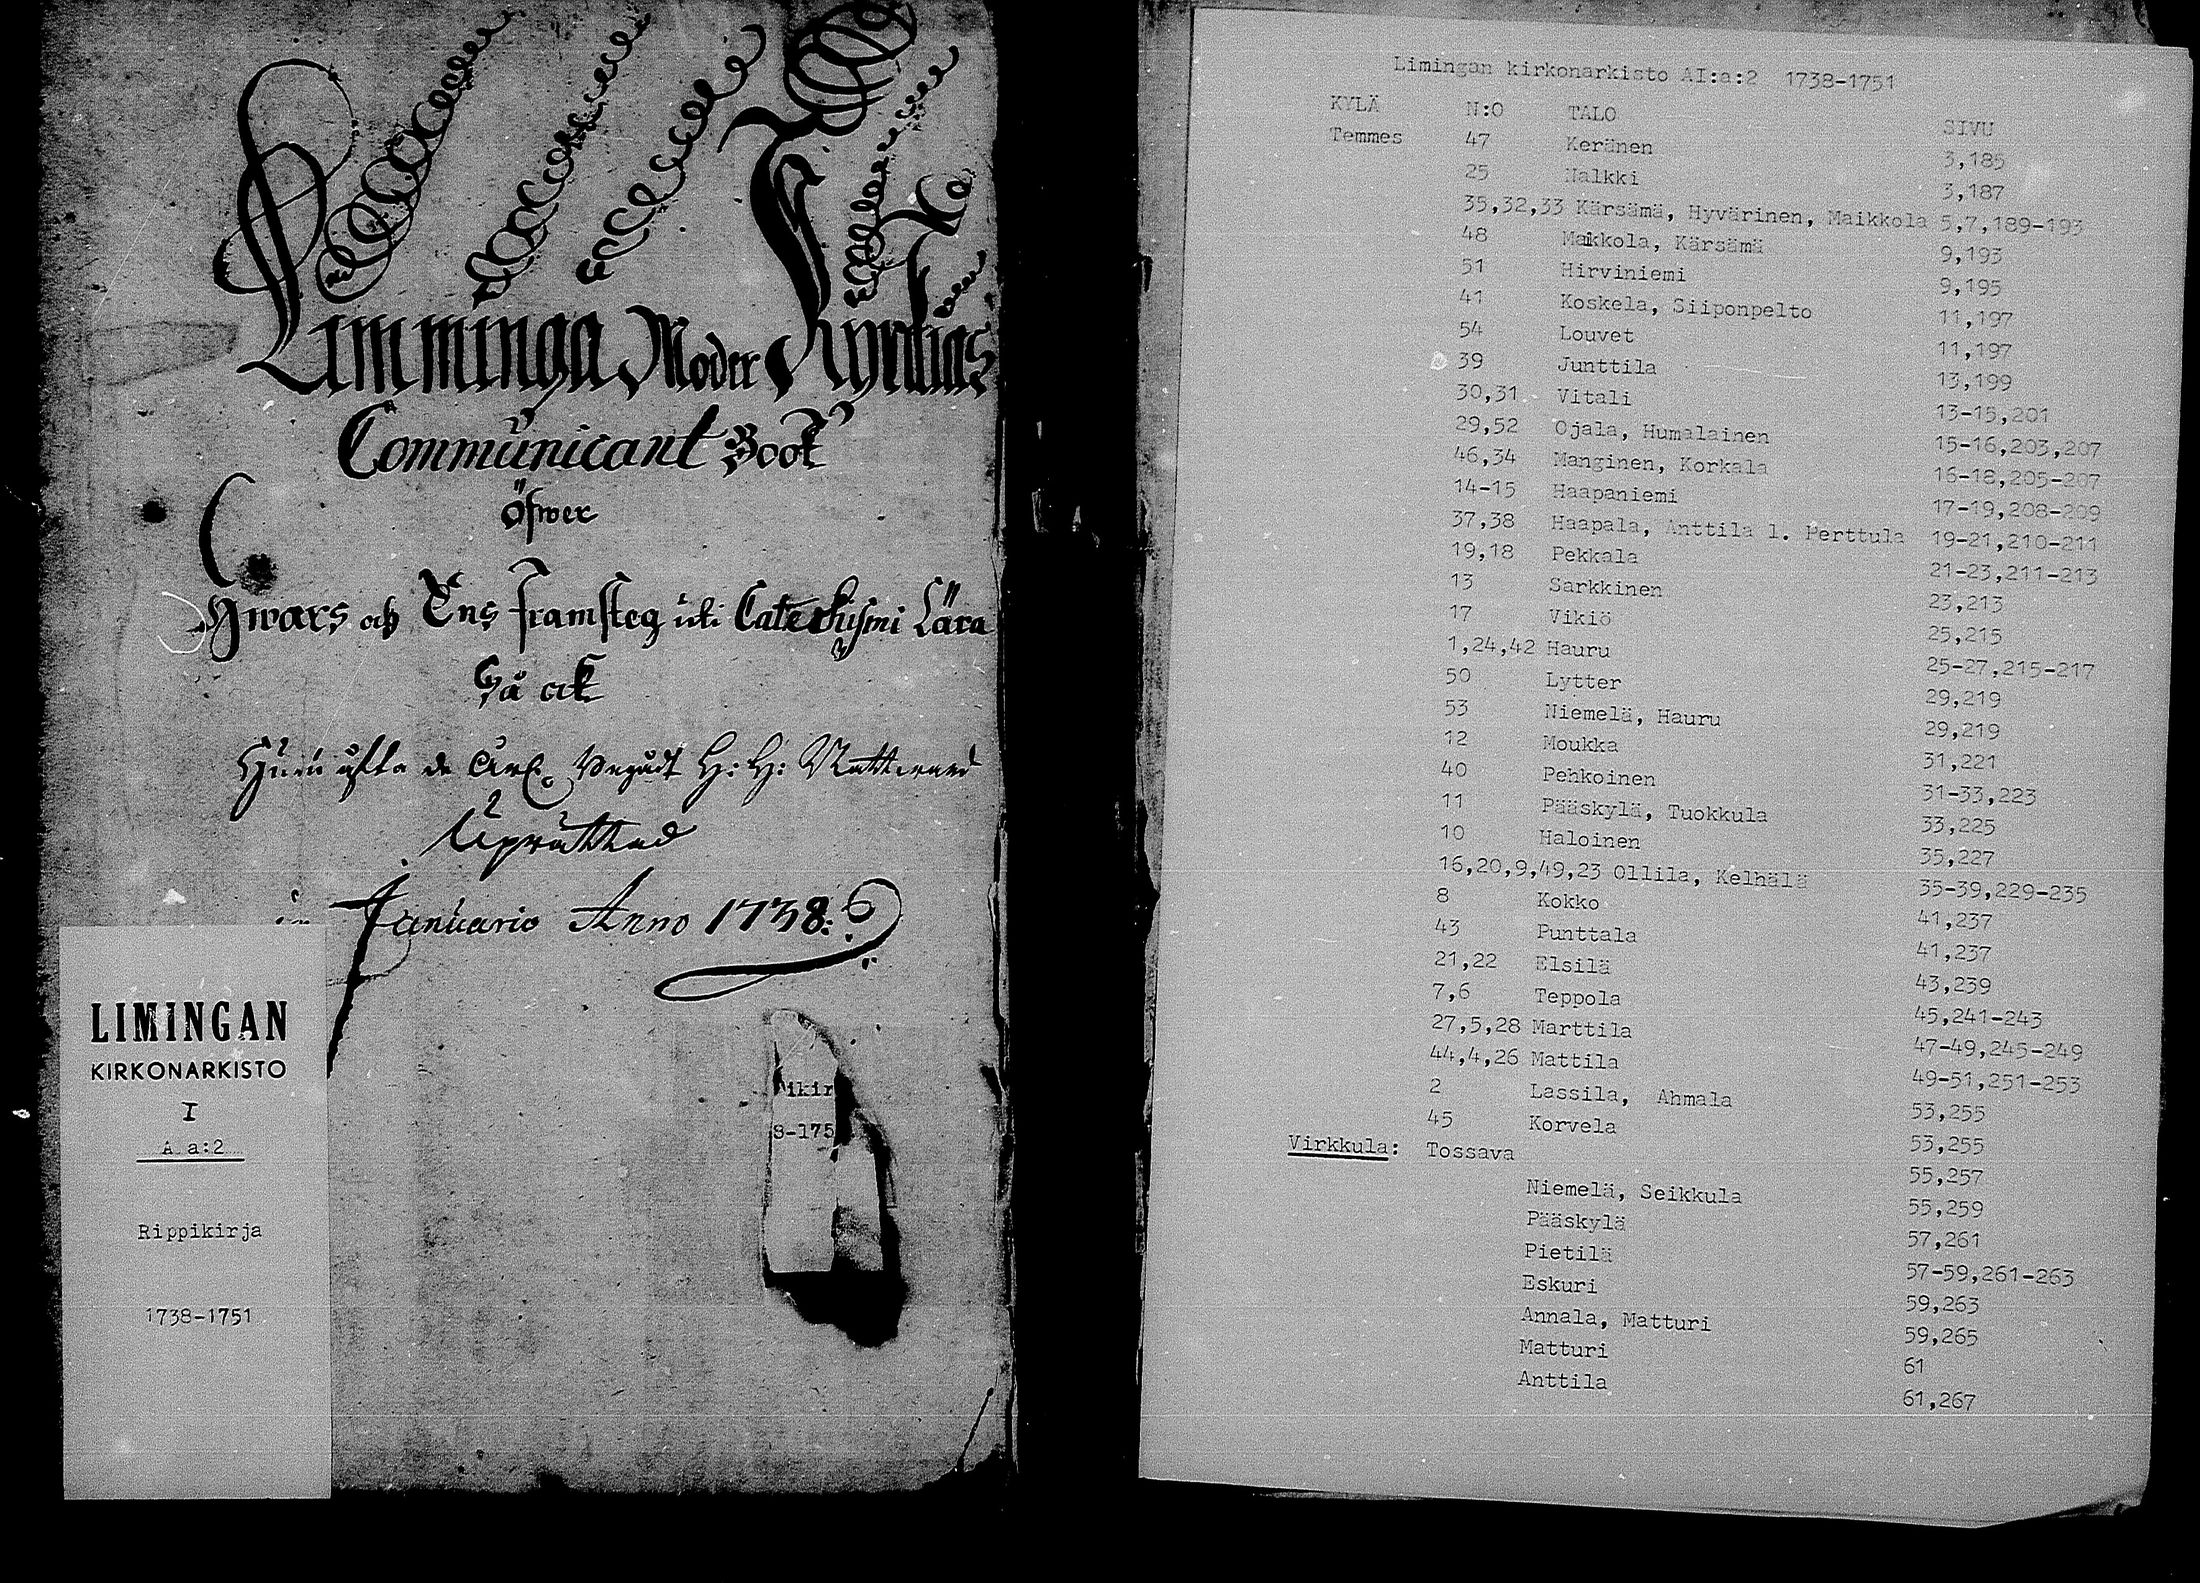 Limminga Moder Kyrkias
Communicant Book
Öfwer
Hwars och Ens framsteg uti Catechismi Lära
Så ock
Huru ofta de
H: H: Nattward
Uprättad
in Januario Anno 1738:
LIMINGAN
KIRKONARKISTO
I
A a:2
Rippikirja
1738-1751
ikir
8-175
Limingan kirkonarkisto AI:a:2 1738-1751
KYLÄ N:O TALO SIVU
Temmes 47 Keränen 3,185
25 Nalkki 3,187
35,32,33 Kärsämä, Hyvärinen, Maikkola 5,7,189-193
48 Maikkola, Kärsämä 9,193
51 Hirviniemi 9,195
41 Koskela, Siiponpelto 11,197
54 Louvet 11,197
39 Junttila 13,199
30,31 Vitali 13-15,201
29,52 Ojala, Humalainen 15-16,203,207
46,34 Manginen, Korkala 16-18,205-207
14-15 Haapaniemi 17-19,208-209
37,38 Haapala, Anttila l. Perttula 19-21,210-211
19,18 Pekkala 21-23,211-213
13 Sarkkinen 23,213
17 Vikiö 25,215
1,24,42 Hauru 25-27,215-217
50 Lytter 29,219
53 Niemelä, Hauru 29,219
12 Moukka 31,221
40 Pehkoinen 31-33,223
11 Pääskylä, Tuokkula 33,225
10 Haloinen 35,227
16,20,9,49,23 Ollila, Kelhälä 35-39,229-235
8 Kokko 41,237
43 Punttala 41,237
21,22 Elsilä 43,239
7,6 Teppola 45,241-243
27,5,28 Marttila 47-49,245-249
44,4,26 Mattila 49-51,251-253
2 Lassila, Ahmala 53,255
45 Korvela 53,255
Virkkula: Tossava 55,257
Niemelä, Seikkula 55,259
Pääskylä 57,261
Pietilä 57-59,261-263
Eskuri 59,263
Annala, Matturi 59,265
Matturi 61
Anttila 61,267